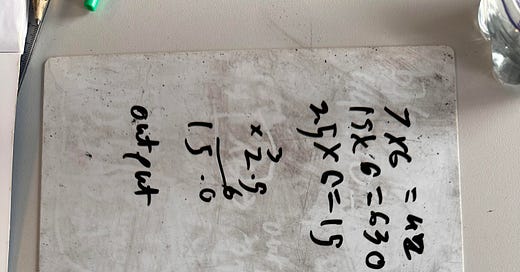 7x6 = 42
15x.6 = 630
25x0 = 15
3
x 2.5
6
15.0
output